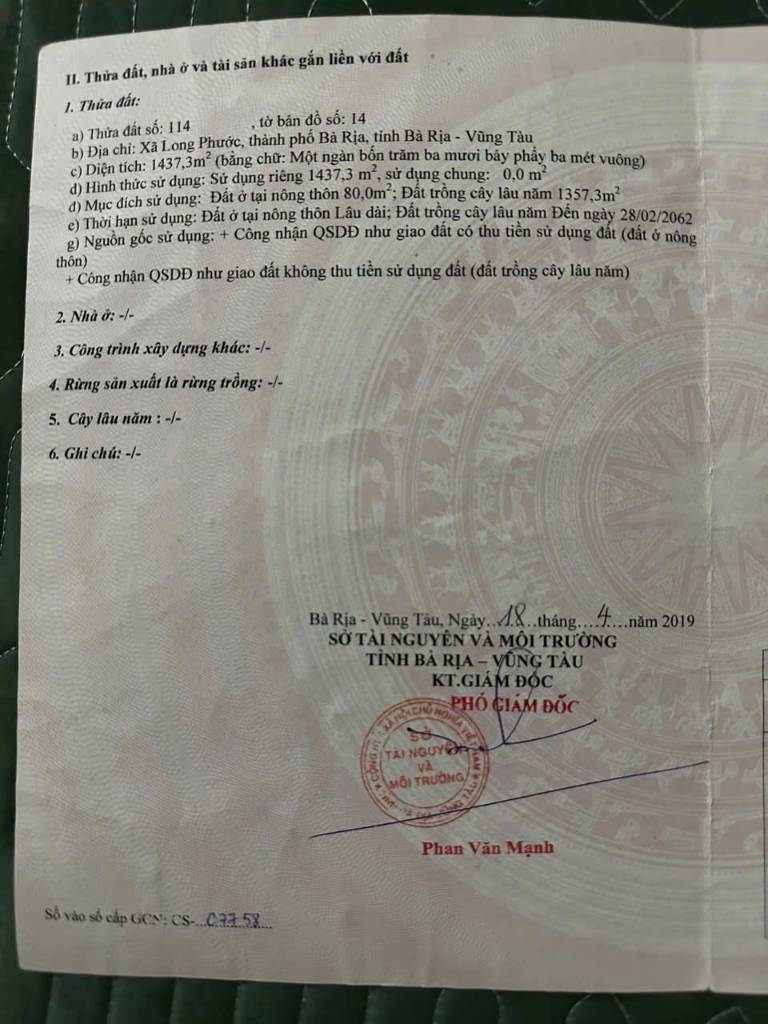 II. Thửa đất, nhà ở và tài sản khác gắn liền với đất
1. Thửa đất:
a) Thửa đất số: 114 , tờ bản đồ số: 14
b) Địa chỉ: Xã Long Phước, thành phố Bà Rịa, tỉnh Bà Rịa - Vũng Tàu
c) Diện tích: 1437,3m² (bằng chữ: Một ngàn bốn trăm ba mươi bảy phẩy ba mét vuông)
d) Hình thức sử dụng: Sử dụng riêng 1437,3 m², sử dụng chung: 0,0 m²
đ) Mục đích sử dụng: Đất ở tại nông thôn 80,0m²; Đất trồng cây lâu năm 1357,3m²
e) Thời hạn sử dụng: Đất ở tại nông thôn Lâu dài; Đất trồng cây lâu năm Đến ngày 28/02/2062
g) Nguồn gốc sử dụng: + Công nhận QSDĐ như giao đất có thu tiền sử dụng đất (đất ở nông
thôn)
+ Công nhận QSDĐ như giao đất không thu tiền sử dụng đất (đất trồng cây lâu năm)
2. Nhà ở: -/-
3. Công trình xây dựng khác: -/-
4. Rừng sản xuất là rừng trồng: -/-
5. Cây lâu năm : -/-
6. Ghi chú: -/-
Bà Rịa - Vũng Tàu, Ngày...18...tháng....4....năm 2019
SỞ TÀI NGUYÊN VÀ MÔI TRƯỜNG
TỈNH BÀ RỊA – VŨNG TÀU
KT.GIÁM ĐỐC
PHÓ GIÁM ĐỐC
SỞ
TÀI NGUYÊN
VÀ
MÔI TRƯỜNG
Phan Văn Mạnh
Số vào sổ cấp GCN: CS-...07758...